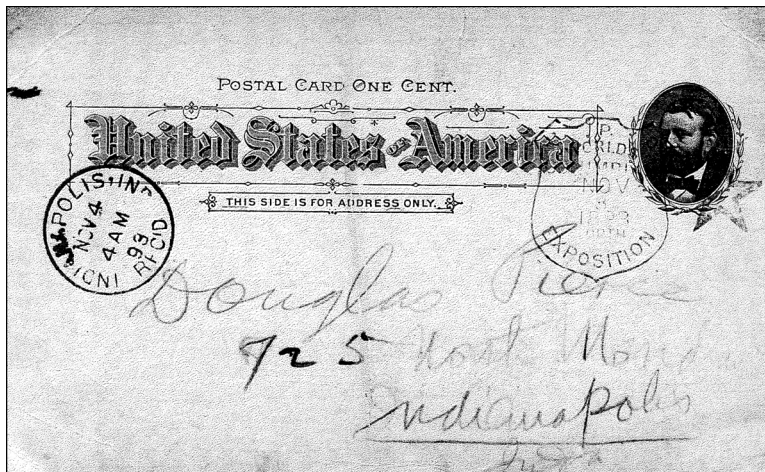 POSTAL CARD ONE CENT.
United States of America
THIS SIDE IS FOR ADDRESS ONLY.
NOV 4
4 AM
93
REC'D
NOV
1893
EXPOSITION
Douglas Pierce
725
Indianapolis